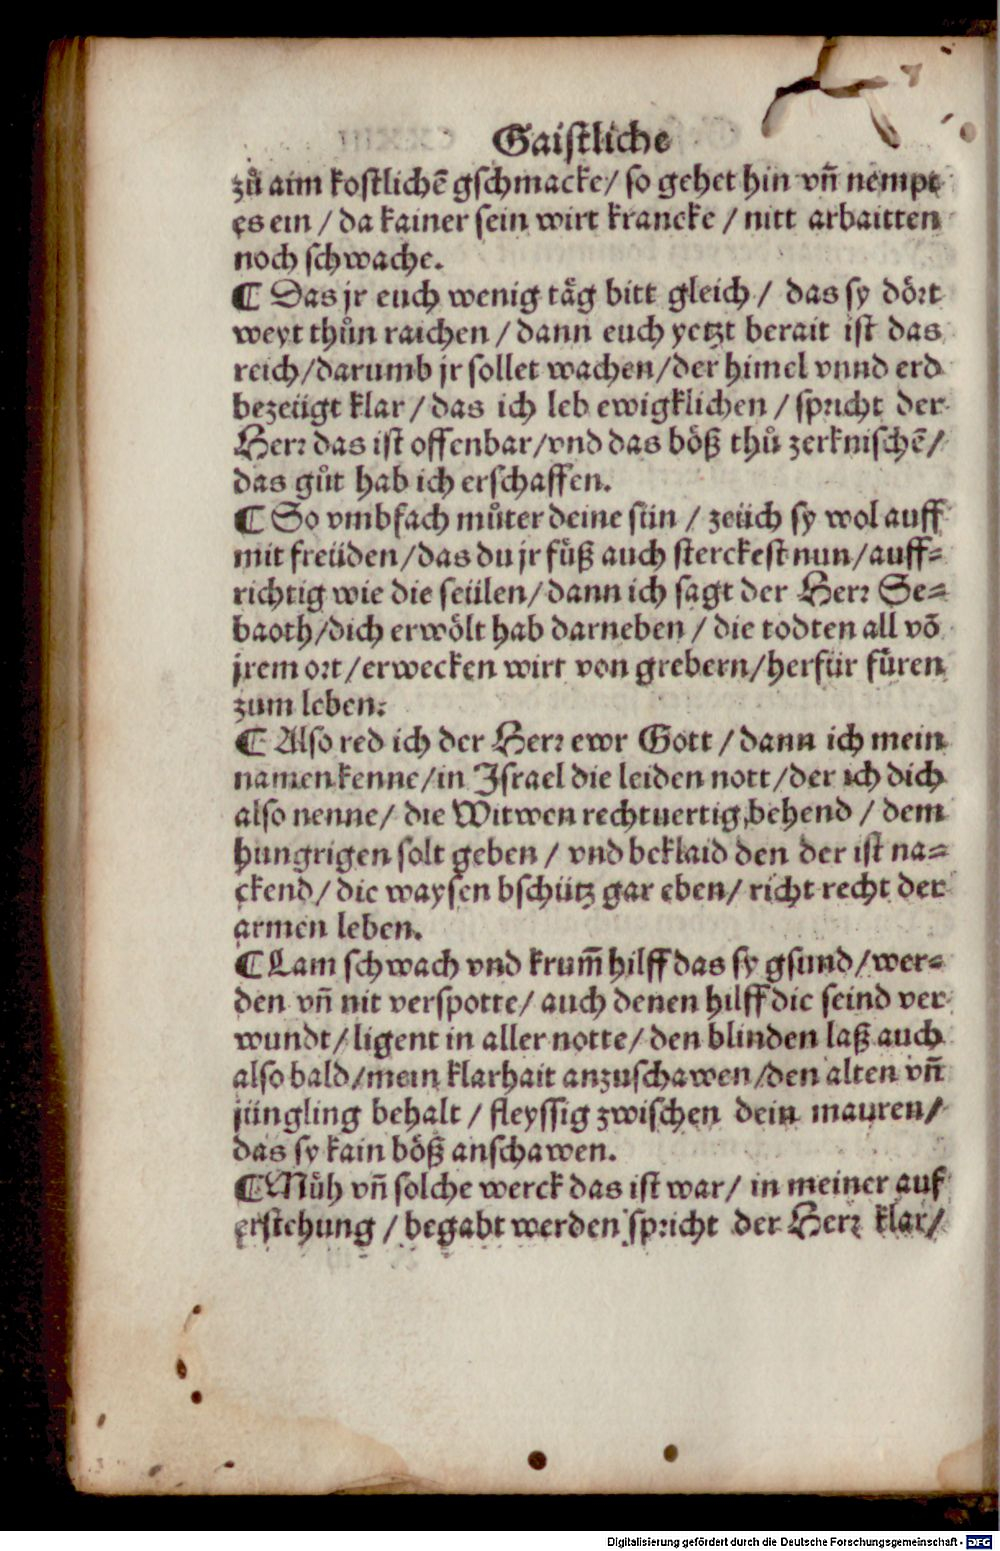 Gaistliche
zů aim kostlichẽ gschmacke/ so gehet hin vñ nempt
es ein / da kainer sein wirt krancke / nitt arbaitten
noch schwache.
¶ Das jr euch wenig tåg bitt gleich / das sy dört
weyt thůn raichen / dann euch yetzt berait ist das
reich/darumb jr sollet wachen/der himel vnnd erd
bezeügt klar / das ich leb ewigklichen / spricht der
Herr das ist offenbar/vnd das böß thů zerknischẽ/
das gůt hab ich erschaffen.
¶ So vmbfach můter deine stin / zeüch sy wol auff
mit freüden/das du jr füß auch sterckest nun/auff⸗
richtig wie die seülen/dann ich sagt der Herr Se⸗
baoth/dich erwölt hab darneben / die todten all võ
jrem ort/erwecken wirt von grebern/herfür füren
zum leben.
¶ Also red ich der Herr ewr Gott / dann ich mein
namen kenne/in Israel die leiden nott/der ich dich
also nenne/ die Witwen rechtuertig behend / dem
hungrigen solt geben / vnd beklaid den der ist na⸗
ckend/ die waysen bschütz gar eben/ richt recht der
armen leben.
¶ Lam schwach vnd krum̃ hilff das sy gsund/wer⸗
den vñ nit verspotte/ auch denen hilff die seind ver
wundt/ligent in aller notte/den blinden laß auch
also bald/mein klarhait anzuschawen/den alten vñ
jüngling behalt / fleyssig zwischen dein mauren/
das sy kain böß anschawen.
¶ Müh vñ solche werck das ist war/ in meiner auf
erstehung / begabt werden spricht der Herr klar/
Digitalisierung gefördert durch die Deutsche Forschungsgemeinschaft - DFG